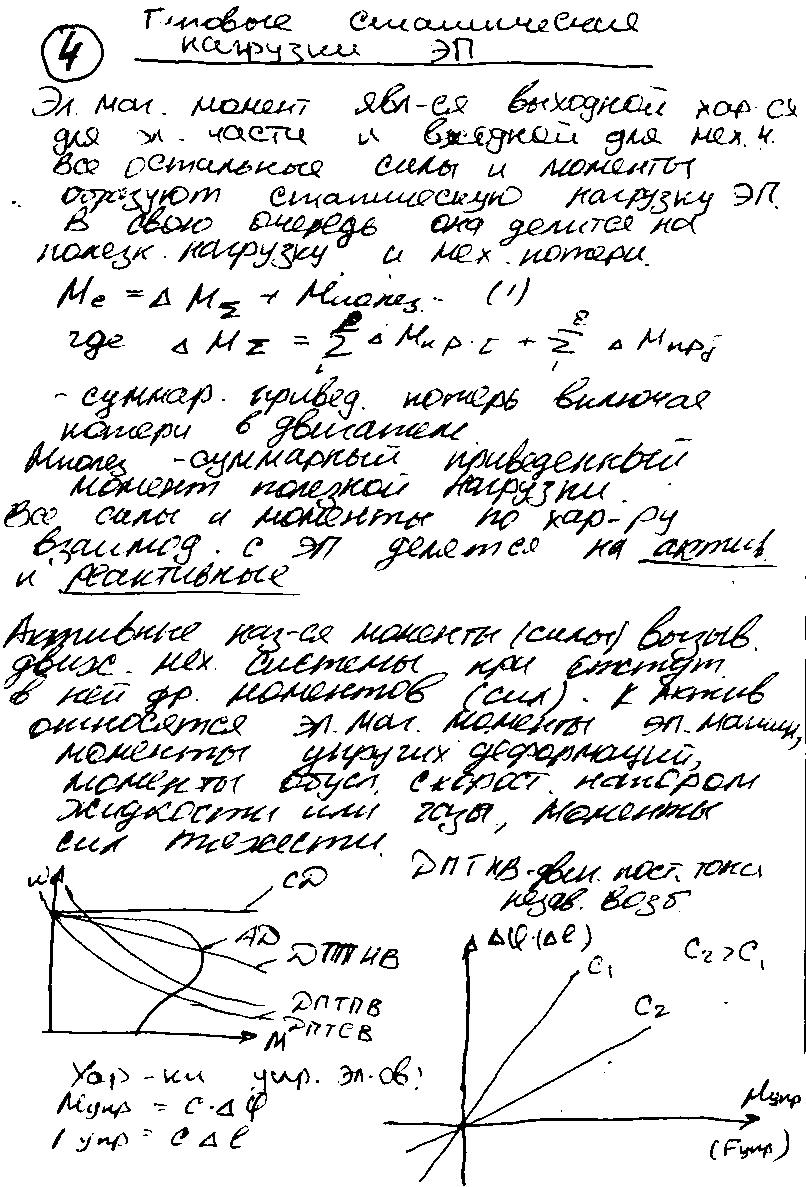 Типовые статические
нагрузки ЭП
4
Эл. маг. момент явл-ся выходной хар-ся
для эл. части и входной для мех. ч.
Все остальные силы и моменты
образуют статическую нагрузку ЭП.
В свою очередь она делится на
полезн. нагрузку и мех. потери.
Mc = Δ MΣ + Mполез. (1)
где Δ MΣ = Σ Δ Mпр.i + Σ Δ Mпрj
- суммар. привед. потерь включая
потери в двигателе
Mполез - суммарный приведенный
момент полезной нагрузки.
Все силы и моменты по хар-ру
взаимод. с ЭП делятся на актив.
и реактивные
Активные наз-ся моменты (силы) вызыв.
движ. мех. системы при отсутт.
в ней др. моментов (сил). К актив
относятся эл. маг. моменты эл. машин,
моменты упругих деформаций,
моменты обусл. скорост. напором
жидкости или газы, моменты
сил тяжести.
ДПТНВ - двиг. пост. тока
незав. возб.
ω
СД
АД
ДПТНВ
ДПТПВ
ДПТСВ
M
Δφ (Δl)
C1
C2 > C1
C2
Mупр
(Fупр)
Хар-ки упр. эл-ов:
Mупр = c·Δφ
Fупр = c Δl